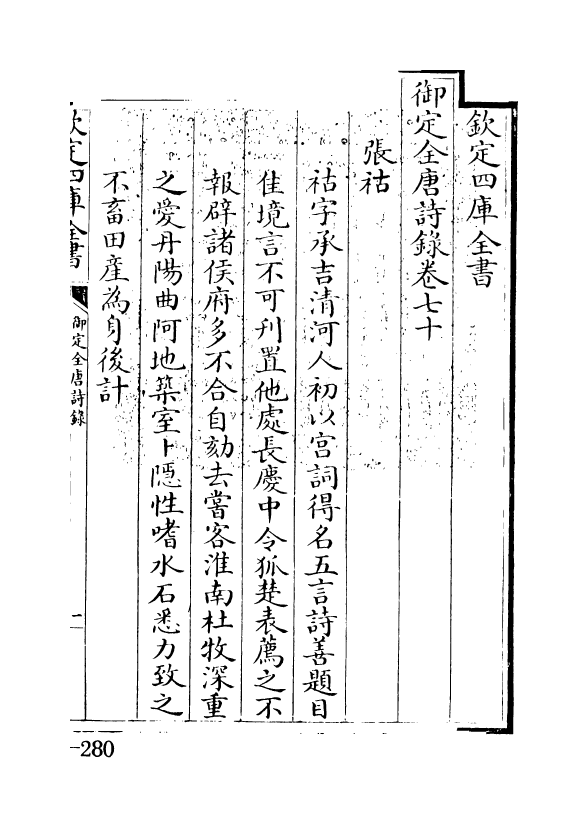 欽定四庫全書
御定全唐詩錄卷七十
張祜
祜字承吉清河人初以宮詞得名五言詩善題目
佳境言不可刋置他處長慶中令狐楚表薦之不
報辟諸侯府多不合自劾去嘗客淮南杜牧深重
之愛丹陽曲阿地築室卜隠性嗜水石悉力致之
不畜田產為身後計
欽定四庫全書
御定全唐詩錄
一
-280